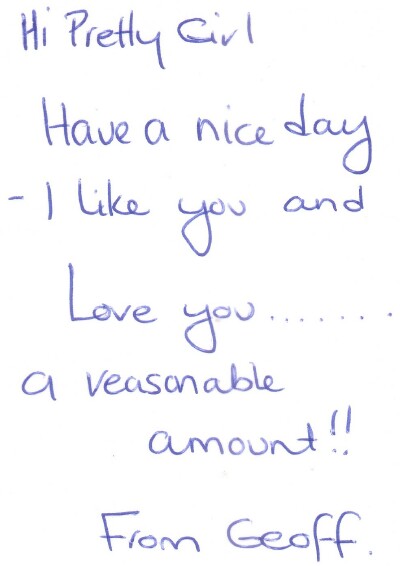 Hi Pretty Girl
Have a nice day
- I like you and
Love you........
a reasonable
amount!!
From Geoff.